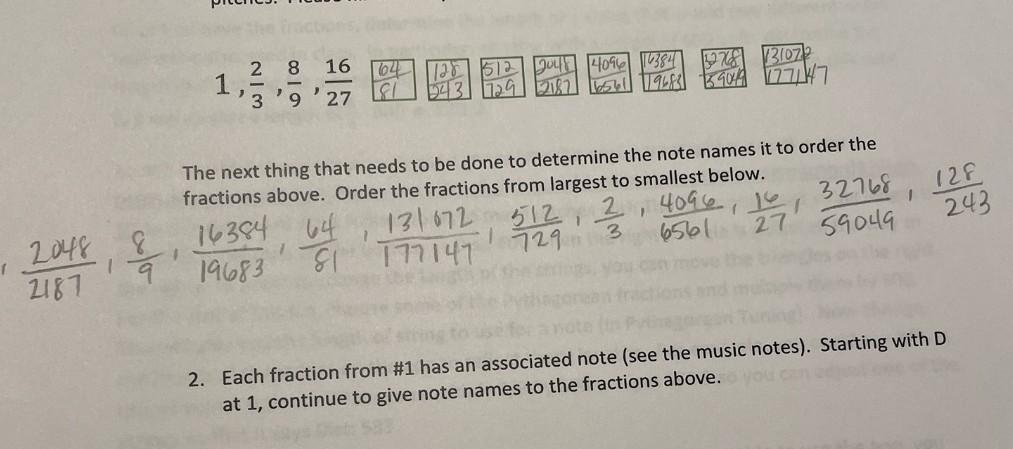 1, 2/3, 8/9, 16/27 64/81 128/243 512/729 2048/2187 4096/6561 16384/19683 32768/59049 131072/177147
The next thing that needs to be done to determine the note names it to order the
fractions above. Order the fractions from largest to smallest below.
, 2048/2187, 8/9, 16384/19683, 64/81, 131072/177147, 512/729, 2/3, 4096/6561, 16/27, 32768/59049, 128/243
2. Each fraction from #1 has an associated note (see the music notes). Starting with D
at 1, continue to give note names to the fractions above.